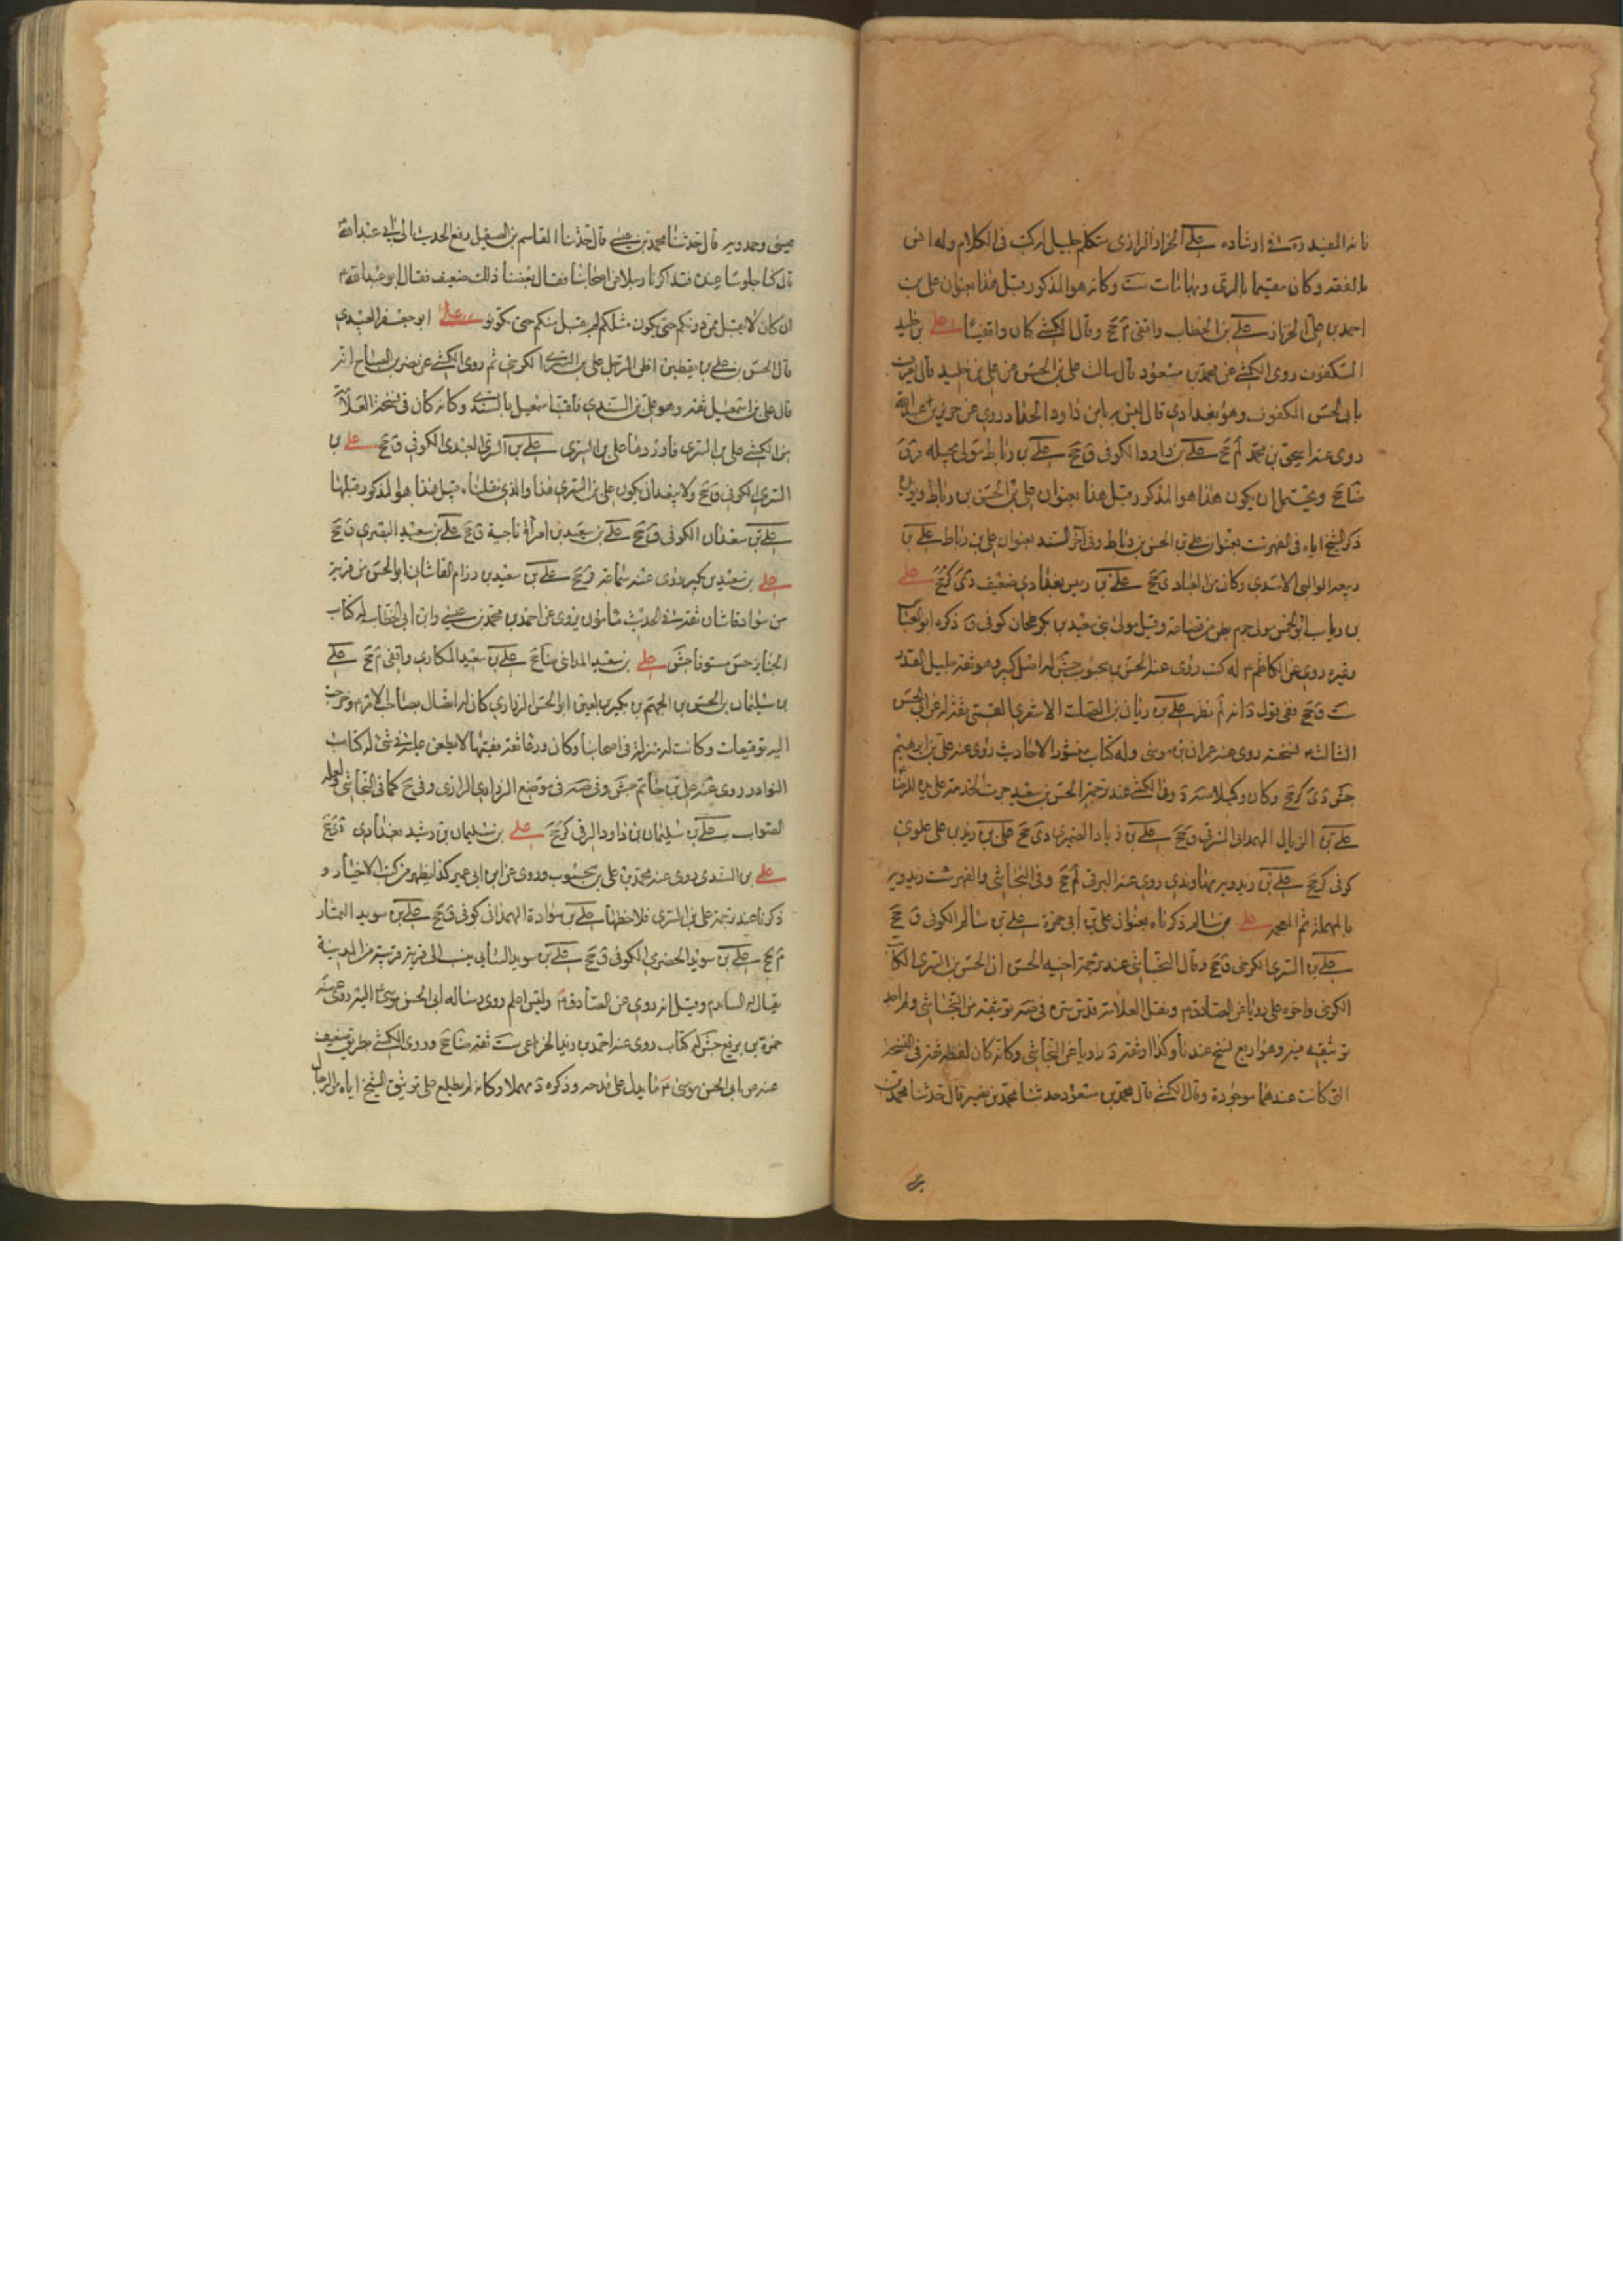 فانه المفيد ره في ارشاده علي الخزاز الرازي متكلم جليل له كتب في الكلام وله انس
بالفقه وكان مقيما بالري وبها مات ست وكانه هو المذكور قبل هذا بعنوان علي بن
احمد بن علي الخزاز علي بن الخطاب واقفي م جخ وقال الكشي كان واقفيا علي بن خليد
المكفوف روى الكشي عن محمد بن مسعود قال سالت علي بن الحسن عن علي بن خليد قال يعرف
بابي الحسن المكفوف وهو بغدادي قال ليس به باس داود الحداد روى عن حريز بن عبدالله
روى عنه اسحق بن محمد لم جخ علي بن داود الكوفي ق جخ علي بن رباط مولى بجيله قر ق
ضا جخ ويحتمل ان يكون هذا هو المذكور قبل هذا بعنوان علي بن الحسن بن رباط ويؤيده
ذكر الشيخ اياه في الفهرست بعنوان علي بن الحسن بن رباط وفي آخر السند بعنوان علي بن رباط علي بن
ربيعة الوالبي الاسدي وكان من العباد ى جخ علي بن ريس بغدادي ضعيف دى كر جخ علي
بن رئاب ابو الحسن مولى جرم بطن من قضاعة وقيل مولى بني سعيد بن بكر طحان كوفي ق ذكره ابو العباس
وغيره روى عن الكاظم م له كتب روى عنه الحسن بن محبوب جش له اصل كبير وهو ثقة جليل القدر
ست ق جخ ففي قول د انه لم نظر علي بن ريان بن الصلت الاشعري القمي ثقة له عن ابي الحسن
الثالث م نسخة روى عنه عمران بن موسى وله كتاب منثور الاحاديث روى عنه علي بن ابرهيم
جش دى كر جخ وكان وكيلا صه د وفي الكشي عند ترجمة الحسن بن سعيد جرت الخدمة على يده للرضا
علي بن الزيال الهمداني المشرقي ق جخ علي بن زياد الصيمري دى جخ علي بن زيد بن علي علوي
كوفي كر جخ علي بن زيدويه نهاوندي روى عنه البرقي لم جخ وفي النجاشي والفهرست ريدويه
بالمهملة ثم المعجمه علي بن سالم ذكرناه بعنوان علي بن ابي حمزة علي بن سالم الكوفي ق جخ
علي بن السري الكرخي ق جخ وقال النجاشي عند ترجمة اخيه الحسن ان الحسن بن السري الكاتب
الكرخي واخوه علي رويا عن الصادق م ونقل العلامة قدس سره في صه توثيقه من النجاشي ولم اجد
توثيقه فيه وهو اربع نسخ عندنا وكذا وثقه د راويا عن النجاشي وكانه كان لفظه ثقة في النسخة
التي كانت عندهما موجودة وقال الكشي قال محمد بن مسعود حدثنا محمد بن نصير قال حدثنا محمد بن
عيسى وحمدويه قال حدثنا محمد بن عيسى قال حدثنا القاسم بن الصيقل رفع الحديث الى ابي عبدالله
قال كنا جلوسا عنده فتذاكرنا رجلا من اصحابنا فقال بعضنا ذلك ضعيف فقال ابو عبدالله م
ان كان لا يقبل ممن دونكم حتى يكون مثلكم لم يقبل منكم حتى تكونوا علي ابو جعفر العبدي
قال الحسن بن علي بن يقطين اظن الرجل علي بن السري الكرخي ثم روى الكشي عن نصر بن الصباح انه
قال علي بن اسمعيل ثقة وهو علي بن السندي فلقب اسمعيل بالسندي وكانه كان في نسخة العلامة
من الكشي علي بن السري فاوردها علي بن السري علي بن السري العبدي الكوفي ق جخ علي بن
السري الكوفي ق جخ ولا يبعد ان يكون علي بن السري هذا والذي نقلناه قبل هذا هو المذكور قبلهما
علي بن سعدان الكوفي ق جخ علي بن سعيد بن امرأة ناجية ق جخ علي بن سعيد البصري ق جخ
علي بن سعيد بن بكير روى عنه سماعة ق جخ علي بن سعيد بن رزام القاشاني ابو الحسن من قرية
من سواد قاشان ثقة في الحديث مأمون يروي عن احمد بن محمد بن عيسى وابن ابي الخطاب له كتاب
الجنايز حسن مستوفا جش علي بن سعيد المدائني ضا جخ علي بن سعيد المكاري واقفي م جخ علي
بن سليمان بن الحسن بن الجهم بن بكير بن اعين ابو الحسن الزراري كان له اتصال بصاحب الامر م وخرجت
اليه توقيعات وكانت له منزلة في اصحابنا وكان ورعا ثقة فقيها لا يطعن عليه في شئ له كتاب
النوادر روى عنه علي بن حاتم جش وفي صه في موضع الزراري الرازي وفي جخ كما في النجاشي ولعله
الصواب علي بن سليمان بن داود الرقي كر جخ علي بن سليمان بن رشيد بغدادي دى جخ
علي بن السندي روى عنه محمد بن علي بن محبوب وروى عن ابن ابي عمير كذا يظهر من كتب الاخبار و
ذكرنا عند ترجمة علي بن السري فلاحظها علي بن سوادة الهمداني كوفي ق جخ علي بن سويد التمار
م جخ علي بن سويد الحضرمي الكوفي ق جخ علي بن سويد السائي ينسب الى قرية قريبة من المدينة
يقال لها السايه وقيل انه روى عن الصادق م وليس اعلم روى رسالة ابي الحسن موسى م اليه روى عنه
حمزة بن بزيع جش له كتاب روى عنه احمد بن زيد الخزاعي ست ثقة ضا جخ وروى الكشي بطريق ضعيف
عنه عن ابي الحسن موسى م ما يدل على مدحه وذكره د مهملا وكانه لم يطلع على توثيق الشيخ اياه في الرجال